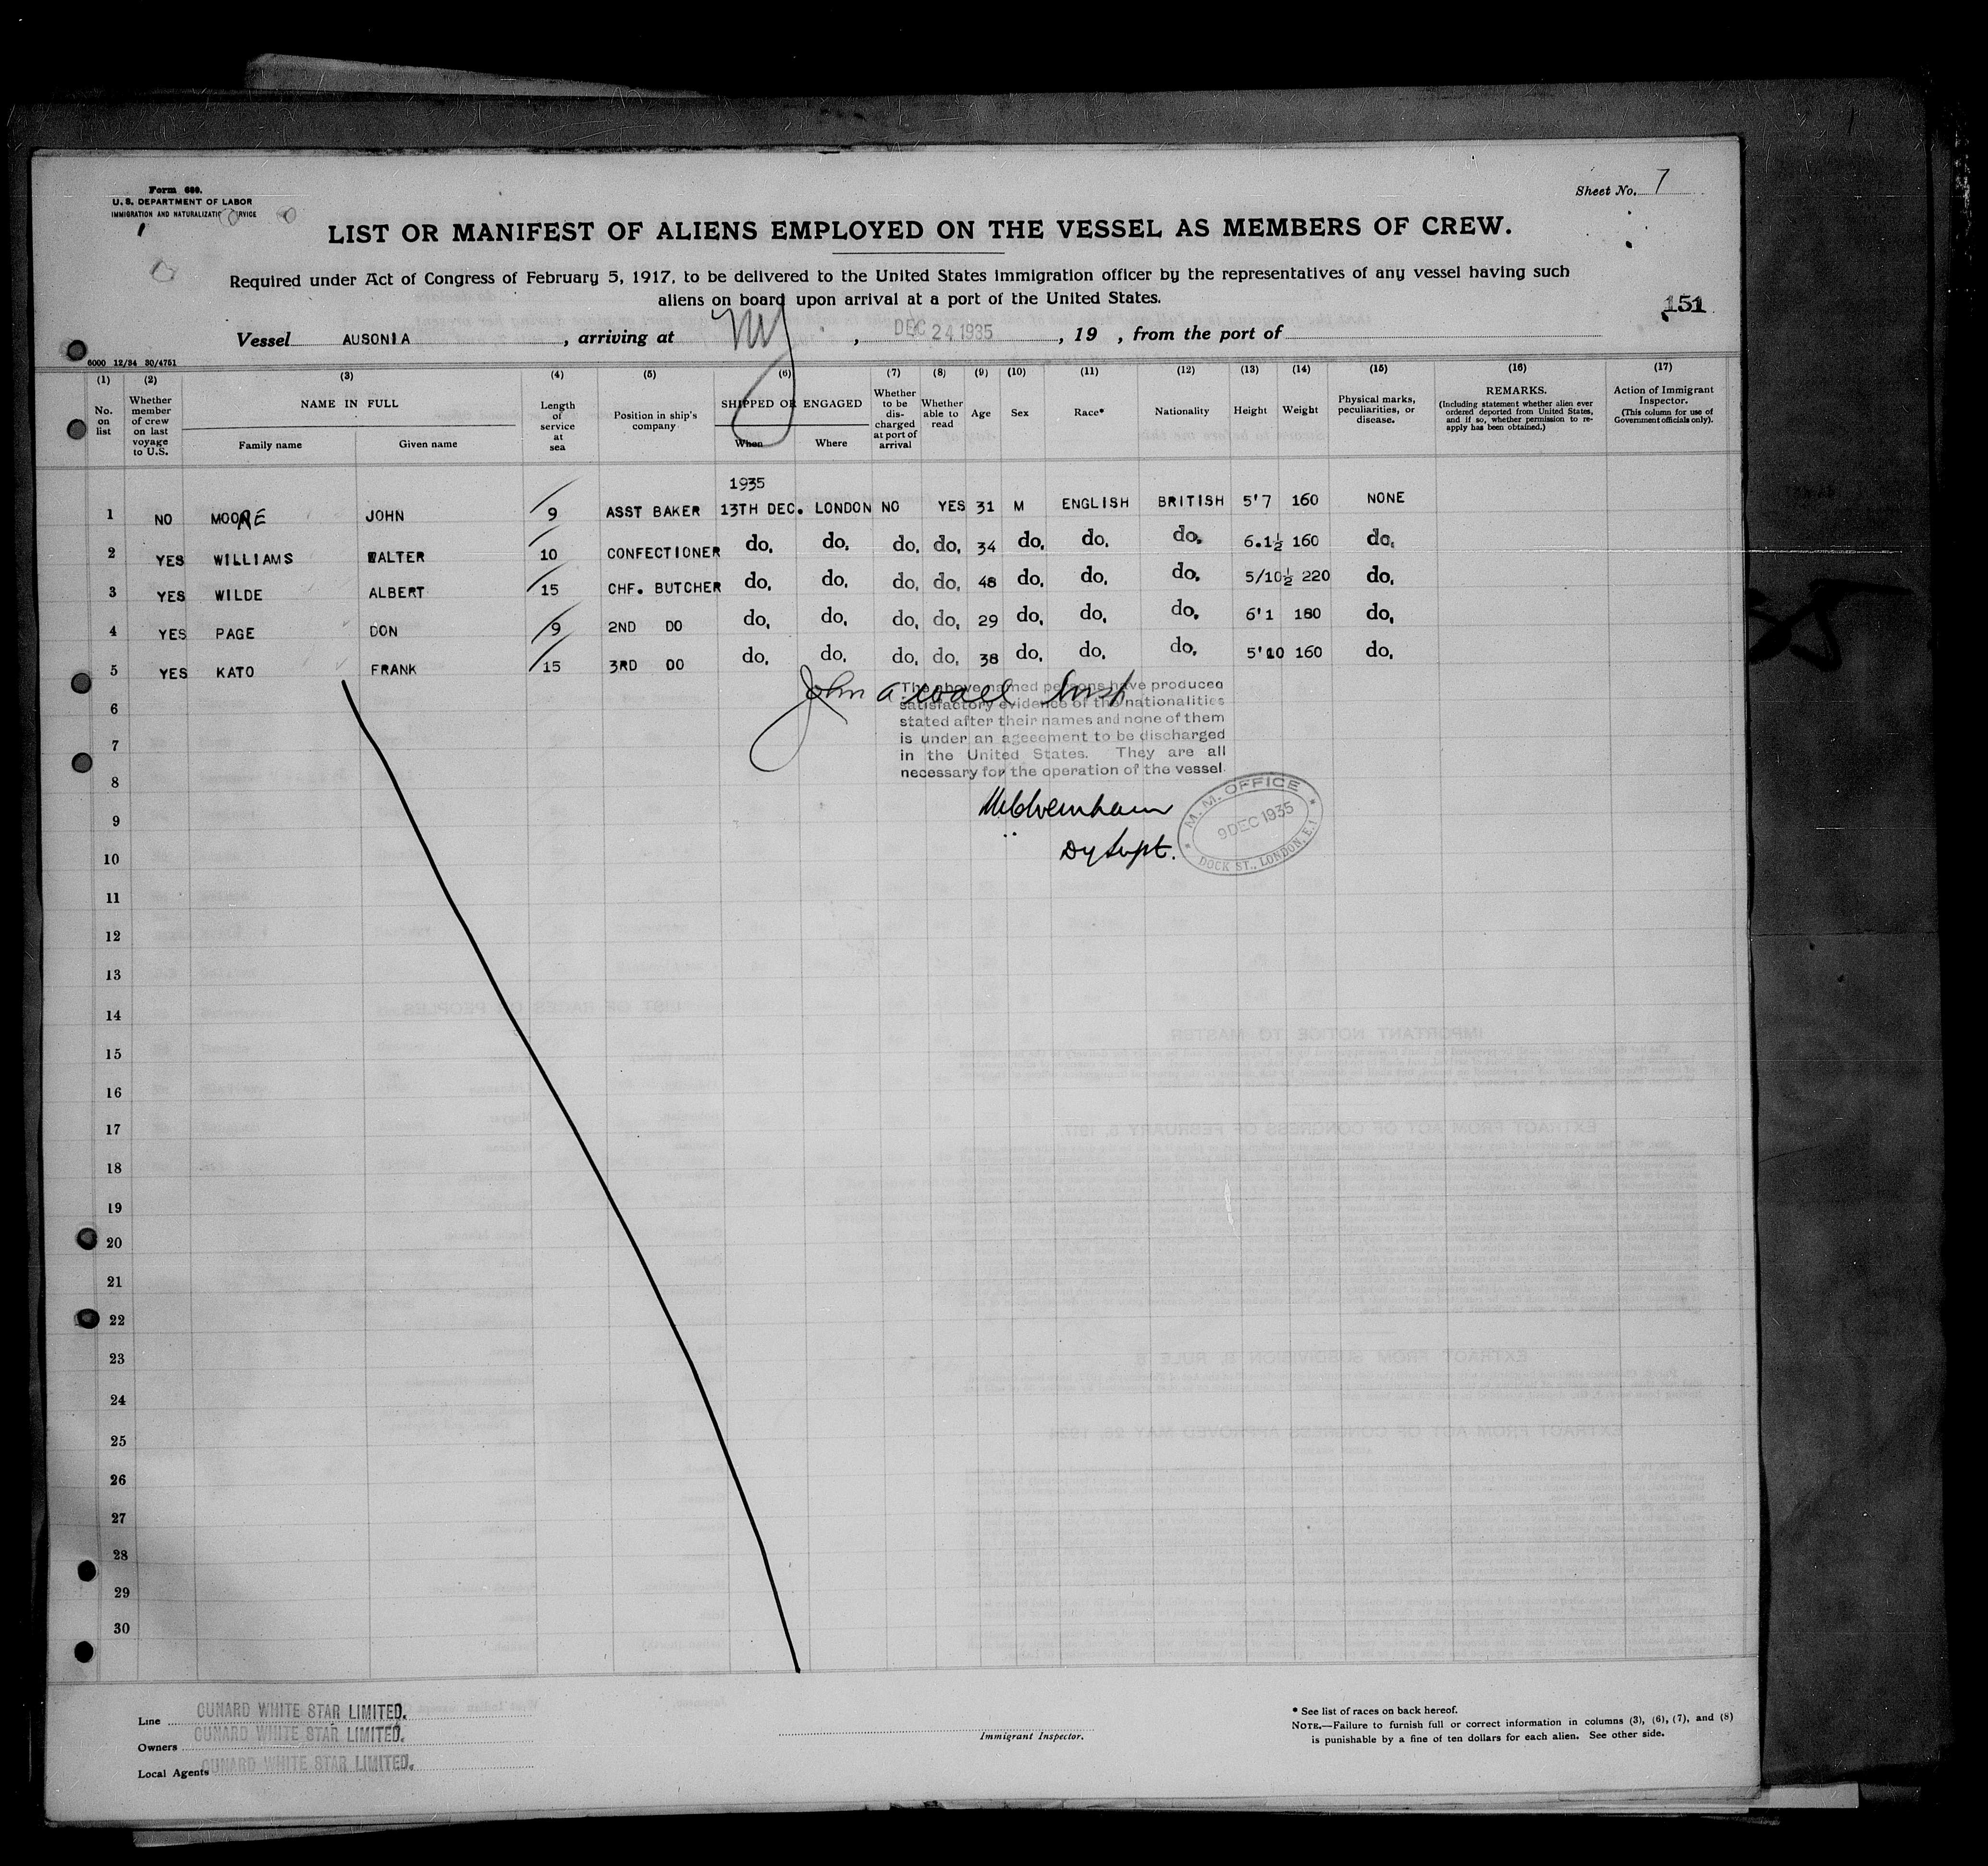 Form 680.
U. S. DEPARTMENT OF LABOR
IMMIGRATION AND NATURALIZATION SERVICE
Sheet No. 7
LIST OR MANIFEST OF ALIENS EMPLOYED ON THE VESSEL AS MEMBERS OF CREW.
Required under Act of Congress of February 5, 1917, to be delivered to the United States immigration officer by the representatives of any vessel having such
aliens on board upon arrival at a port of the United States.
151
Vessel AUSONIA, arriving at NY, DEC 24 1935, 19 , from the port of
6000 12/34 30/4751
(1) (2) (3) (4) (5) (6) (7) (8) (9) (10) (11) (12) (13) (14) (15) (16) (17)
No. on list
Whether member of crew on last voyage to U.S.
NAME IN FULL
Family name Given name
Length of service at sea
Position in ship's company
SHIPPED OR ENGAGED
When Where
Whether to be dis-charged at port of arrival
Whether able to read
Age
Sex
Race*
Nationality
Height
Weight
Physical marks, peculiarities, or disease.
REMARKS.
(Including statement whether alien ever ordered deported from United States, and if so, whether permission to re-apply has been obtained.)
Action of Immigrant Inspector.
(This column for use of Government officials only).
1935
1 NO MOORE JOHN 9 ASST BAKER 13TH DEC. LONDON NO YES 31 M ENGLISH BRITISH 5'7 160 NONE
2 YES WILLIAMS WALTER 10 CONFECTIONER do. do. do. do. 34 do. do. do. 6.1½ 160 do.
3 YES WILDE ALBERT 15 CHF. BUTCHER do. do. do. do. 48 do. do. do. 5/10½ 220 do.
4 YES PAGE DON 9 2ND DO do. do. do. do. 29 do. do. do. 6'1 180 do.
5 YES KATO FRANK 15 3RD DO do. do. do. do. 38 do. do. do. 5'10 160 do.
The above named persons have produced
satisfactory evidence of the nationalities
stated after their names and none of them
is under an ageeement to be discharged
in the United States. They are all
necessary for the operation of the vessel.
John A
Dy Supt.
M. M. OFFICE
9 DEC 1935
DOCK ST., LONDON, E.1
6
7
8
9
10
11
12
13
14
15
16
17
18
19
20
21
22
23
24
25
26
27
28
29
30
Line CUNARD WHITE STAR LIMITED.
Owners CUNARD WHITE STAR LIMITED.
Local Agents CUNARD WHITE STAR LIMITED.
Immigrant Inspector.
* See list of races on back hereof.
NOTE.—Failure to furnish full or correct information in columns (3), (6), (7), and (8)
is punishable by a fine of ten dollars for each alien. See other side.